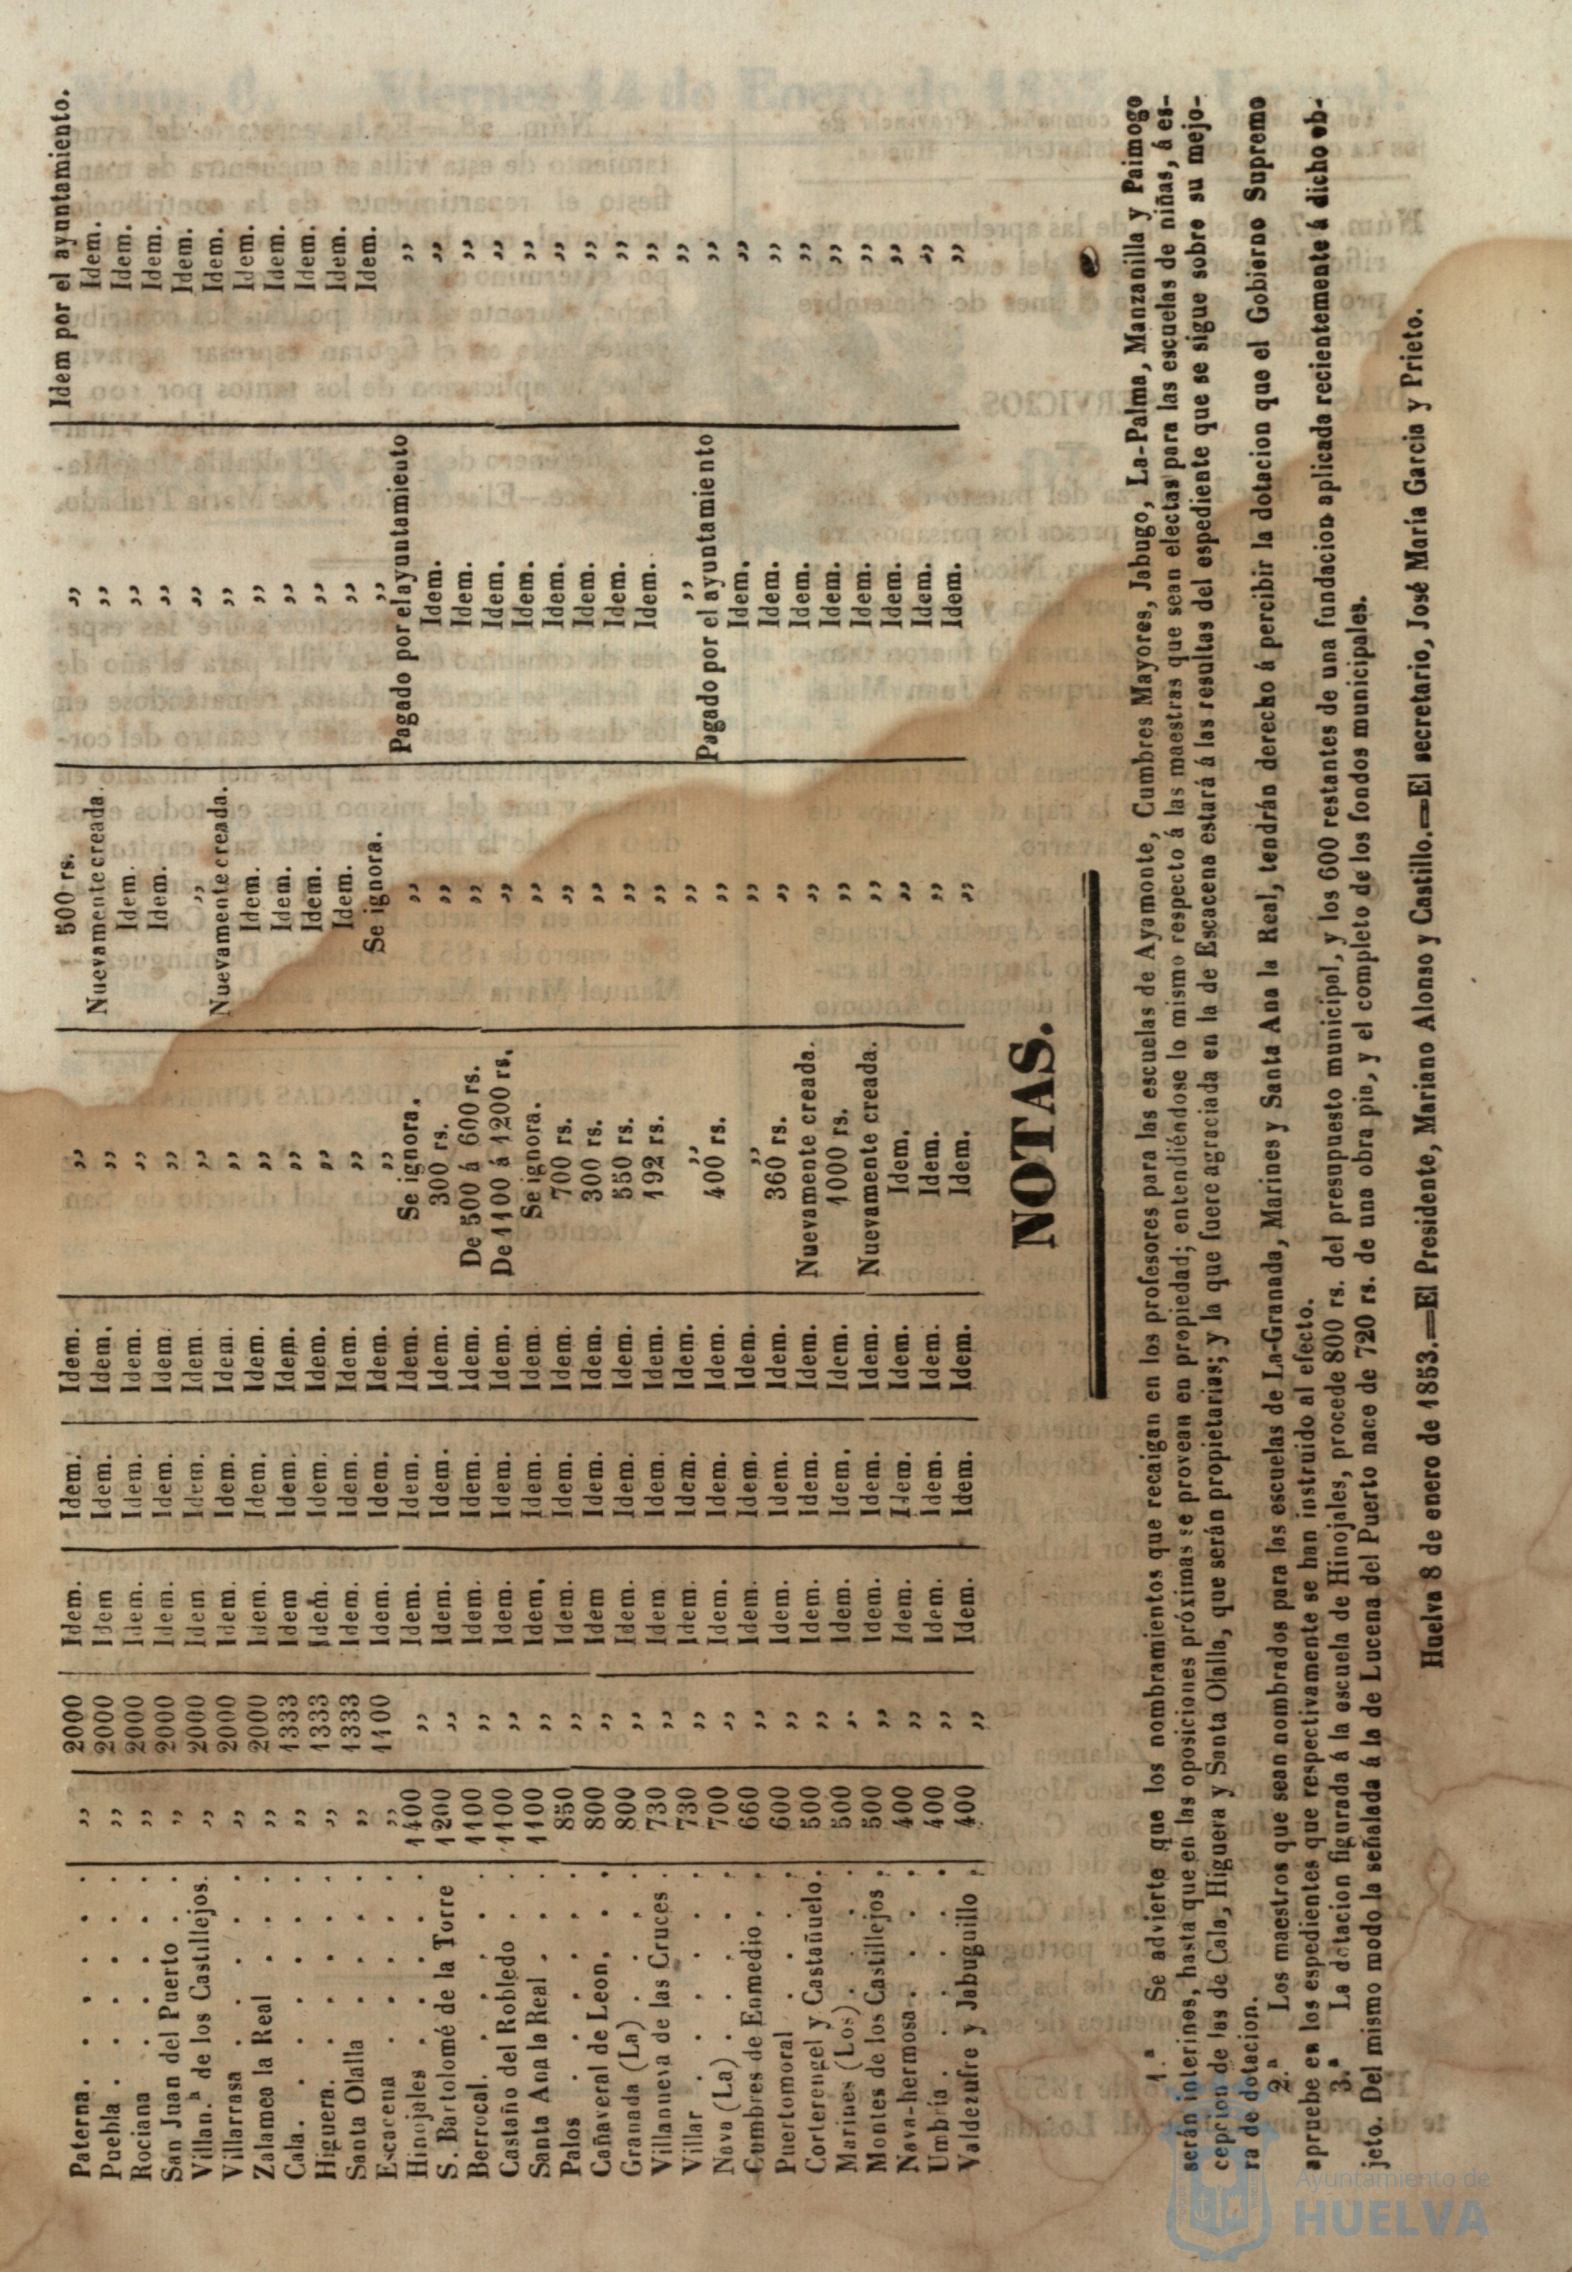 Paterna. . . . . . ,, 2000 Idem. Idem. Idem. ,, 500 rs. ,, Idem por el ayuntamiento.
Puebla . . . . . . ,, 2000 Idem Idem. Idem. ,, Nuevamente creada. ,, Idem.
Rociana . . . . . ,, 2000 Idem. Idem. Idem. ,, Idem. ,, Idem.
San Juan del Puerto . . . ,, 2000 Idem. Idem. Idem. ,, Idem. ,, Idem.
Villan.ª de los Castillejos. ,, 2000 Idem. Idem. Idem. ,, ,, ,, Idem.
Villarrasa . . . . . ,, 2000 Idem. Idem. Idem. ,, Nuevamente creada. ,, Idem.
Zalamea la Real . . . ,, 2000 Idem. Idem. Idem. ,, Idem. ,, Idem.
Cala . . . . . . . ,, 1333 Idem Idem. Idem. ,, Idem. ,, Idem.
Higuera. . . . . . ,, 1333 Idem. Idem. Idem. ,, Idem. ,, Idem.
Santa Olalla . . . . ,, 1333 Idem. Idem. Idem. ,, Idem. ,, Idem.
Escacena . . . . . ,, 1100 Idem. Idem. Idem. ,, Se ignora. ,, Idem.
Hinojales . . . . . 1400 ,, Idem. Idem. Idem. Se ignora. ,, Pagado por el ayuntamiento ,,
S. Bartolomé de la Torre 1200 ,, Idem. Idem. Idem. 300 rs. ,, Idem. ,,
Berrocal. . . . . . 1100 ,, Idem. Idem. Idem. De 500 á 600 rs. ,, Idem. ,,
Castaño del Robledo . . 1100 ,, Idem. Idem. Idem. De 1100 á 1200 rs. ,, Idem. ,,
Santa Ana la Real . . . 1100 ,, Idem. Idem. Idem. Se ignora. ,, Idem. ,,
Palos . . . . . . 850 ,, Idem. Idem. Idem. 700 rs. ,, Idem. ,,
Cañaveral de Leon. . . 800 ,, Idem Idem. Idem. 300 rs. ,, Idem. ,,
Granada (La) . . . . 800 ,, Idem. Idem. Idem. 550 rs. ,, Idem. ,,
Villanueva de las Cruces . 730 ,, Idem Idem. Idem. 192 rs. ,, Idem. ,,
Villar . . . . . . 730 ,, Idem. Idem. Idem. ,, ,, ,, ,,
Nava (La) . . . . . 700 ,, Idem. Idem. Idem. 400 rs. ,, Pagado por el ayuntamiento ,,
Cumbres de Enmedio . . 660 ,, Idem. Idem. Idem. ,, ,, Idem. ,,
Puertomoral . . . . 600 ,, Idem. Idem. Idem. 360 rs. ,, Idem. ,,
Corterengel y Castañuelo . 500 ,, Idem. Idem. Idem. Nuevamente creada. ,, Idem. ,,
Marines (Los) . . . . 500 ,, Idem. Idem. Idem. 1000 rs. ,, Idem. ,,
Montes de los Castillejos . 500 ,, Idem. Idem. Idem. Nuevamente creada. ,, Idem. ,,
Nava-hermosa. . . . 400 ,, Idem. Idem. Idem. Idem. ,, Idem. ,,
Umbria . . . . . . 400 ,, Idem. Idem. Idem. Idem. ,, Idem. ,,
Valdezufre y Jabuguillo . 400 ,, Idem. Idem. Idem. Idem. ,, Idem. ,,
NOTAS.
1.ª Se advierte que los nombramientos que recaigan en los profesores para las escuelas de Ayamonte, Cumbres Mayores, Jabugo, La-Palma, Manzanilla y Paimogo
serán interinos, hasta que en las oposiciones próximas se provean en propiedad; entendiéndose lo mismo respecto á las maestras que sean electas para las escuelas de niñas, á es-
cepcion de las de Cala, Higuera y Santa Olalla, que serán propietarias; y la que fuere agraciada en la de Escacena estará á las resultas del espediente que se sigue sobre su mejo-
ra de dotacion.
2.ª Los maestros que sean nombrados para las escuelas de La-Granada, Marines y Santa Ana la Real, tendrán derecho á percibir la dotacion que el Gobierno Supremo
apruebe en los espedientes que respectivamente se han instruido al efecto.
3.ª La dotacion figurada á la escuela de Hinojales, procede 800 rs. del presupuesto municipal, y los 600 restantes de una fundacion aplicada recientemente á dicho ob-
jeto. Del mismo modo la señalada á la de Lucena del Puerto nace de 720 rs. de una obra pia, y el completo de los fondos municipales.
Huelva 8 de enero de 1853.=El Presidente, Mariano Alonso y Castillo.=El secretario, José Maria Garcia y Prieto.
Ayuntamiento de
HUELVA